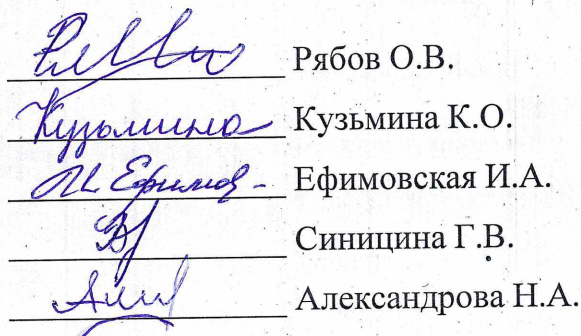 Рябов О.В.
Кузьмина Кузьмина К.О.
Ефимовская И.А.
Синицина Г.В.
Александрова Н.А.